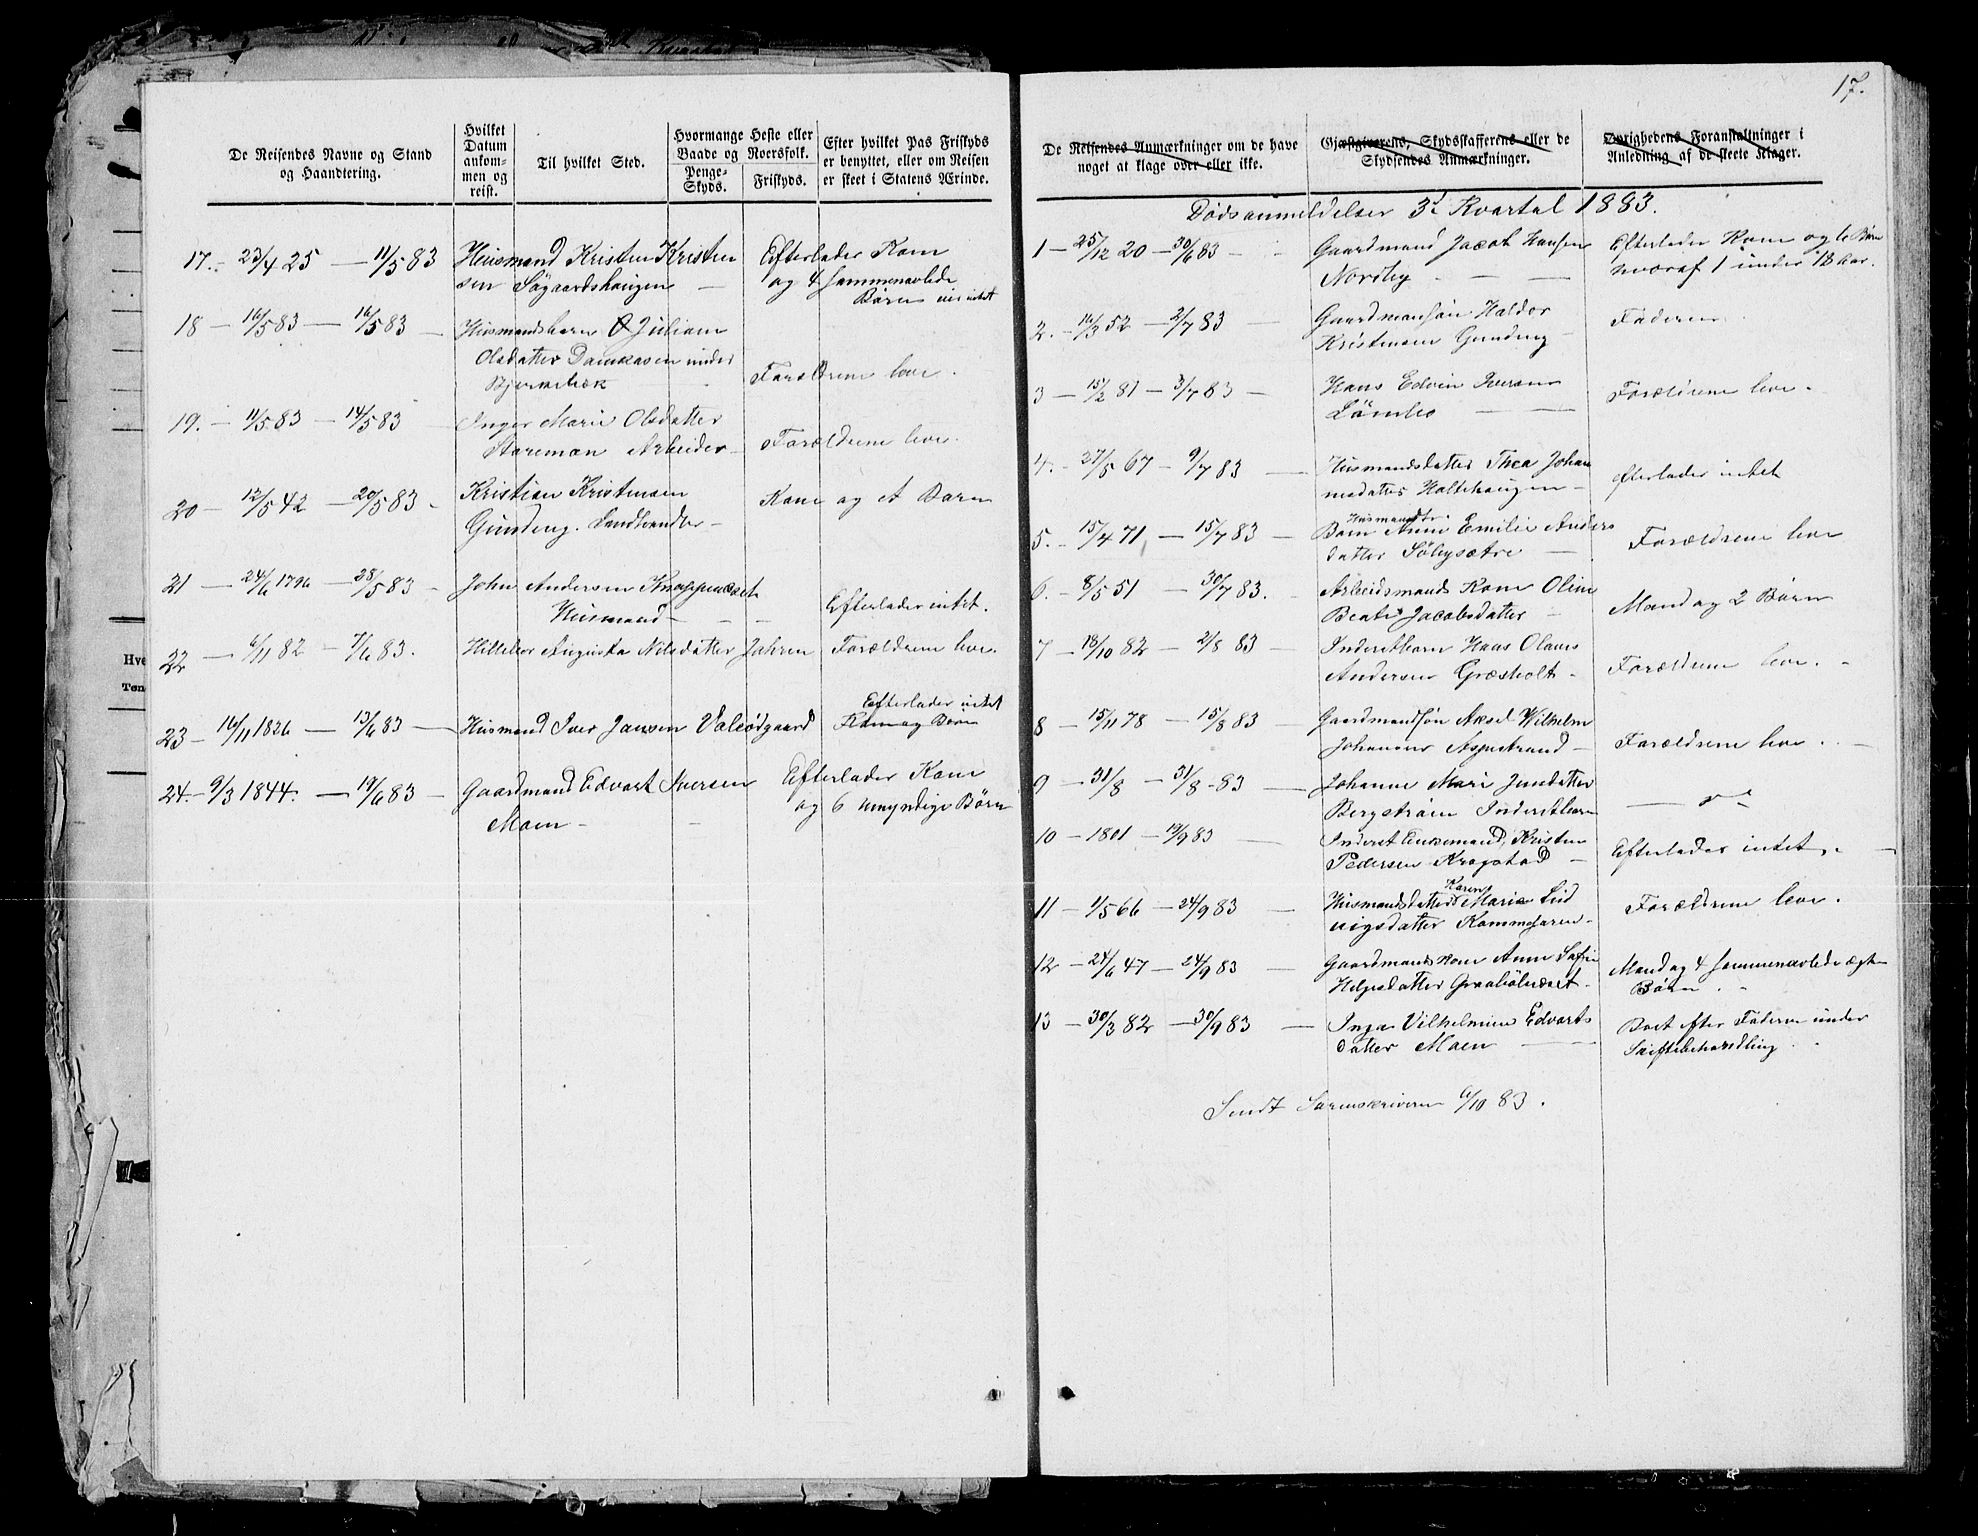 De Reisendes Navne og Stand
og Haandtering.
Hvilket
Datum
ankom-
men og
reist.
Til hvilket Sted.
Hvormange Heste eller
Baade og Roersfolk.
Penge-
Skyds.
Friskyds.
Efter hvilket Pas Friskyds
er benyttet, eller om Reisen
er skeet i Statens Ærinde.
17. - 23/4 25 - 11/5 83 Husmand Kristen Kristen Efterlader Kone
sen Søgaardshaugen - og 4 sammenavlede
Børn
18 - 16/5 83 - 16/5 83 - Husmandsbarn Juliane
Olsdatter Damkasen under
Bjerkebæk Forældrene leve.
19. - 11/5 83 - 14/5 83 Inger Marie Olsdatter
Støremoen Arbeider - Forældrene leve.
20 - 12/5 42 - 20/5 83 - Kristian Kristensen Kone og et Barn
Gundeng. Landhandler -
21 - 24/6 1796 - 28/5 83 - John Andersen
Husmand - - - Efterlader intet.
22 - 6/11 82 - 7/6 83. Hilleborg Augusta Nilsdatter Jahren Forældrene leve.
Efterlader intet
23 - 16/11 1826 - 13/6 83 - Husmand Iver Jansen Valsødgaard Kone og Børn
24. - 9/3 1844. - 19/6 83 - Gaardmand Edvart Iversen Efterlader Kone
Moen - - og 6 umyndige Børn
17.
De Reisendes Anmærkninger om de have
noget at klage over eller ikke.
Gjæstgiverens, Skydsstafferens eller de
Skydsendes Anmærkninger.
Øvrighedens Foranstaltninger i
Anledning af de skeete Klager.
Dødsanmeldelser 3d Kvartal 1883.
1 - 25/12 20 - 30/6 83 - Gaardmand Jacob Hansen Efterlader Kone og 6 Børn
Nordby - - hvoraf 1 under 18 aar.
2. - 14/3 52 - 2/7 83 - Gaardmansøn Haldor Faderen
Kristensen Gundeng -
3 - 15/2 81 - 3/7 83 - Hans Edvin Iversen Forældrene leve.
Lømbo - -
4. - 27/5 67 - 9/7 83 - Husmandsdatter Thea Johan efterlader intet
nesdatter Haltehaugen -
Husmands
5. - 15/4 71 - 15/7 83 - Barn Anne Emilie Anders Forældrene leve
datter Søbysætre -
6. - 8/5 51 - 30/7 83. - Arbeidsmands Kone Oline Mand og 2 Børn
Beate Jacobsdatter -
7 - 18/10 82 - 2/8 83 - Inderstbarn Hans Olaves Forældrene leve.
Andersen Græsholt -
8 - 15/11 78 - 15/8 83 - Gaardmandsøn Aksel Wilhelm
Johansen Aspestrand - Forældrene leve.
9 - 31/8 - 31/8 - 83 - Johanne Mari Jensdatter
Bergstrøm Inderstbarn
10 - 1801 - 19/9 83 - Inderst Enkemand Kristen Efterlader intet
Pedersen Kragstad -
Karen
11 - 1/5 66 - 24/9 83 - Husmandsdatter Marie Lud Forældrene leve.
vigsdatter
12 - 24/6 47 - 24/9 83 - Gaardmands Kone Anne Sofie Mand og 4 sammenavlede ægte
Helgesdatter - Børn.
13 - 30/3 82 - 30/9 83 - Inga Vilhelmine Edvarts Boet efter Faderen under
datter Moen - Skiftebehandling
Sendt Sorenskriveren 6/10 83.